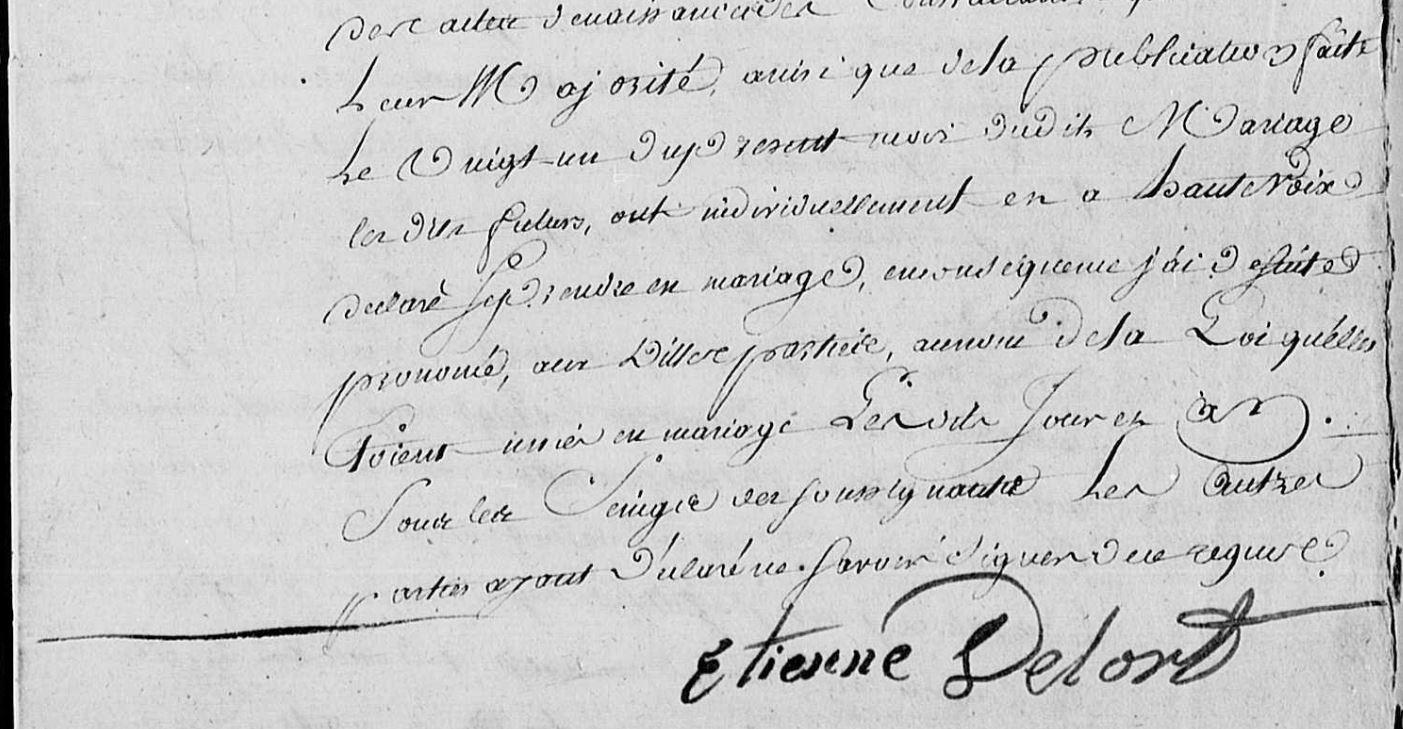 des actes de naissance des
Leur Majorité, ainsi que de la publication faite
Le Vingt un du present mois dudit Mariage
les dits futurs, ont individuellement en a haute Voix
declaré Se prendre en mariage, en consequence j'ai
pronomé, aux dittes parties, au nom de la Loi qu'elles
Soient uniés en mariage Les dits Jour et an.
Sous les Seings des soussignants Les autres
parties ayant déclaré ne Savoir Signer de ce requise
Etienne Delort